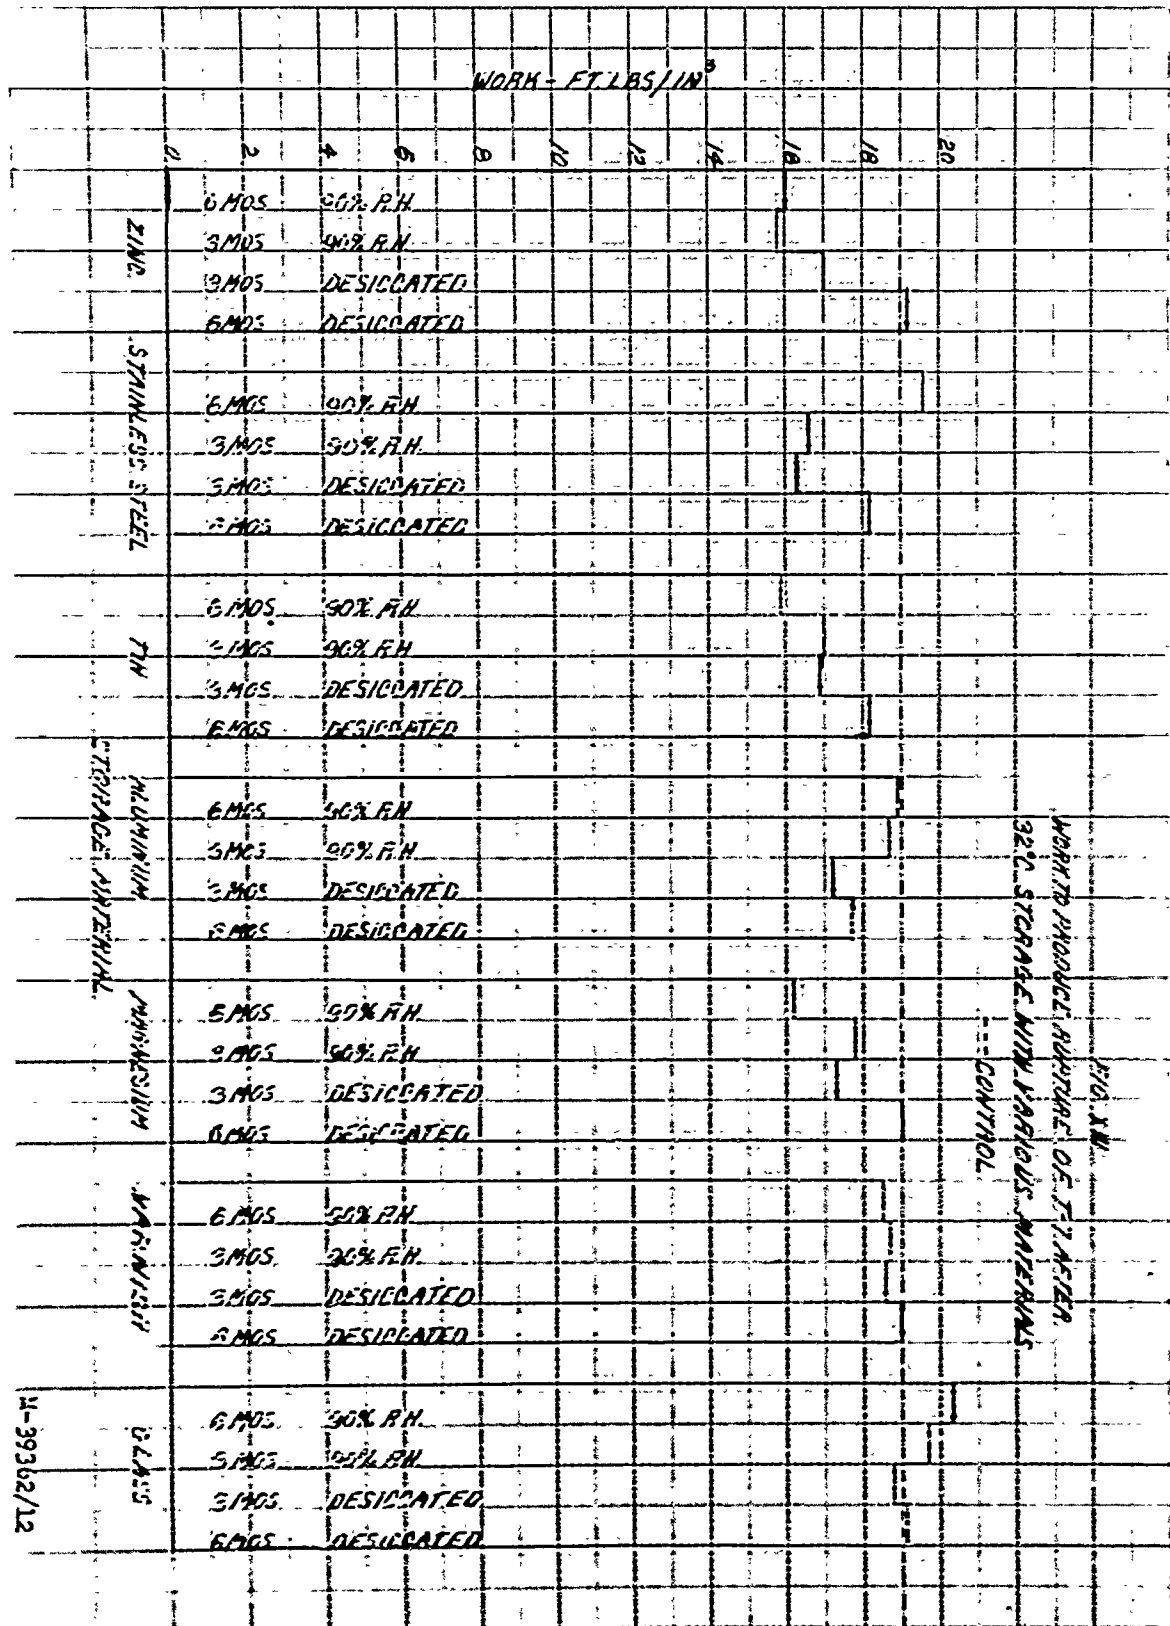 WORK - FT. LBS/IN³
0 2 4 6 8 10 12 14 16 18 20
ZINC
6 MOS 90% R.H.
3 MOS 90% R.H.
3 MOS DESICCATED
6 MOS DESICCATED
STAINLESS STEEL
6 MOS 90% R.H.
3 MOS 90% R.H.
3 MOS DESICCATED
6 MOS DESICCATED
TIN
6 MOS 90% R.H.
3 MOS 90% R.H.
3 MOS DESICCATED
6 MOS DESICCATED
ALUMINUM
6 MOS 90% R.H.
3 MOS 90% R.H.
3 MOS DESICCATED
6 MOS DESICCATED
MAGNESIUM
6 MOS 90% R.H.
3 MOS 90% R.H.
3 MOS DESICCATED
6 MOS DESICCATED
VARNISH
6 MOS 90% R.H.
3 MOS 90% R.H.
3 MOS DESICCATED
6 MOS DESICCATED
GLASS
6 MOS 90% R.H.
3 MOS 90% R.H.
3 MOS DESICCATED
6 MOS DESICCATED
STORAGE MATERIAL
FIG.
WORK TO PRODUCE RUPTURE OF T-7 AFTER
32°C. STORAGE WITH VARIOUS MATERIALS
--- CONTROL
W-39362/12